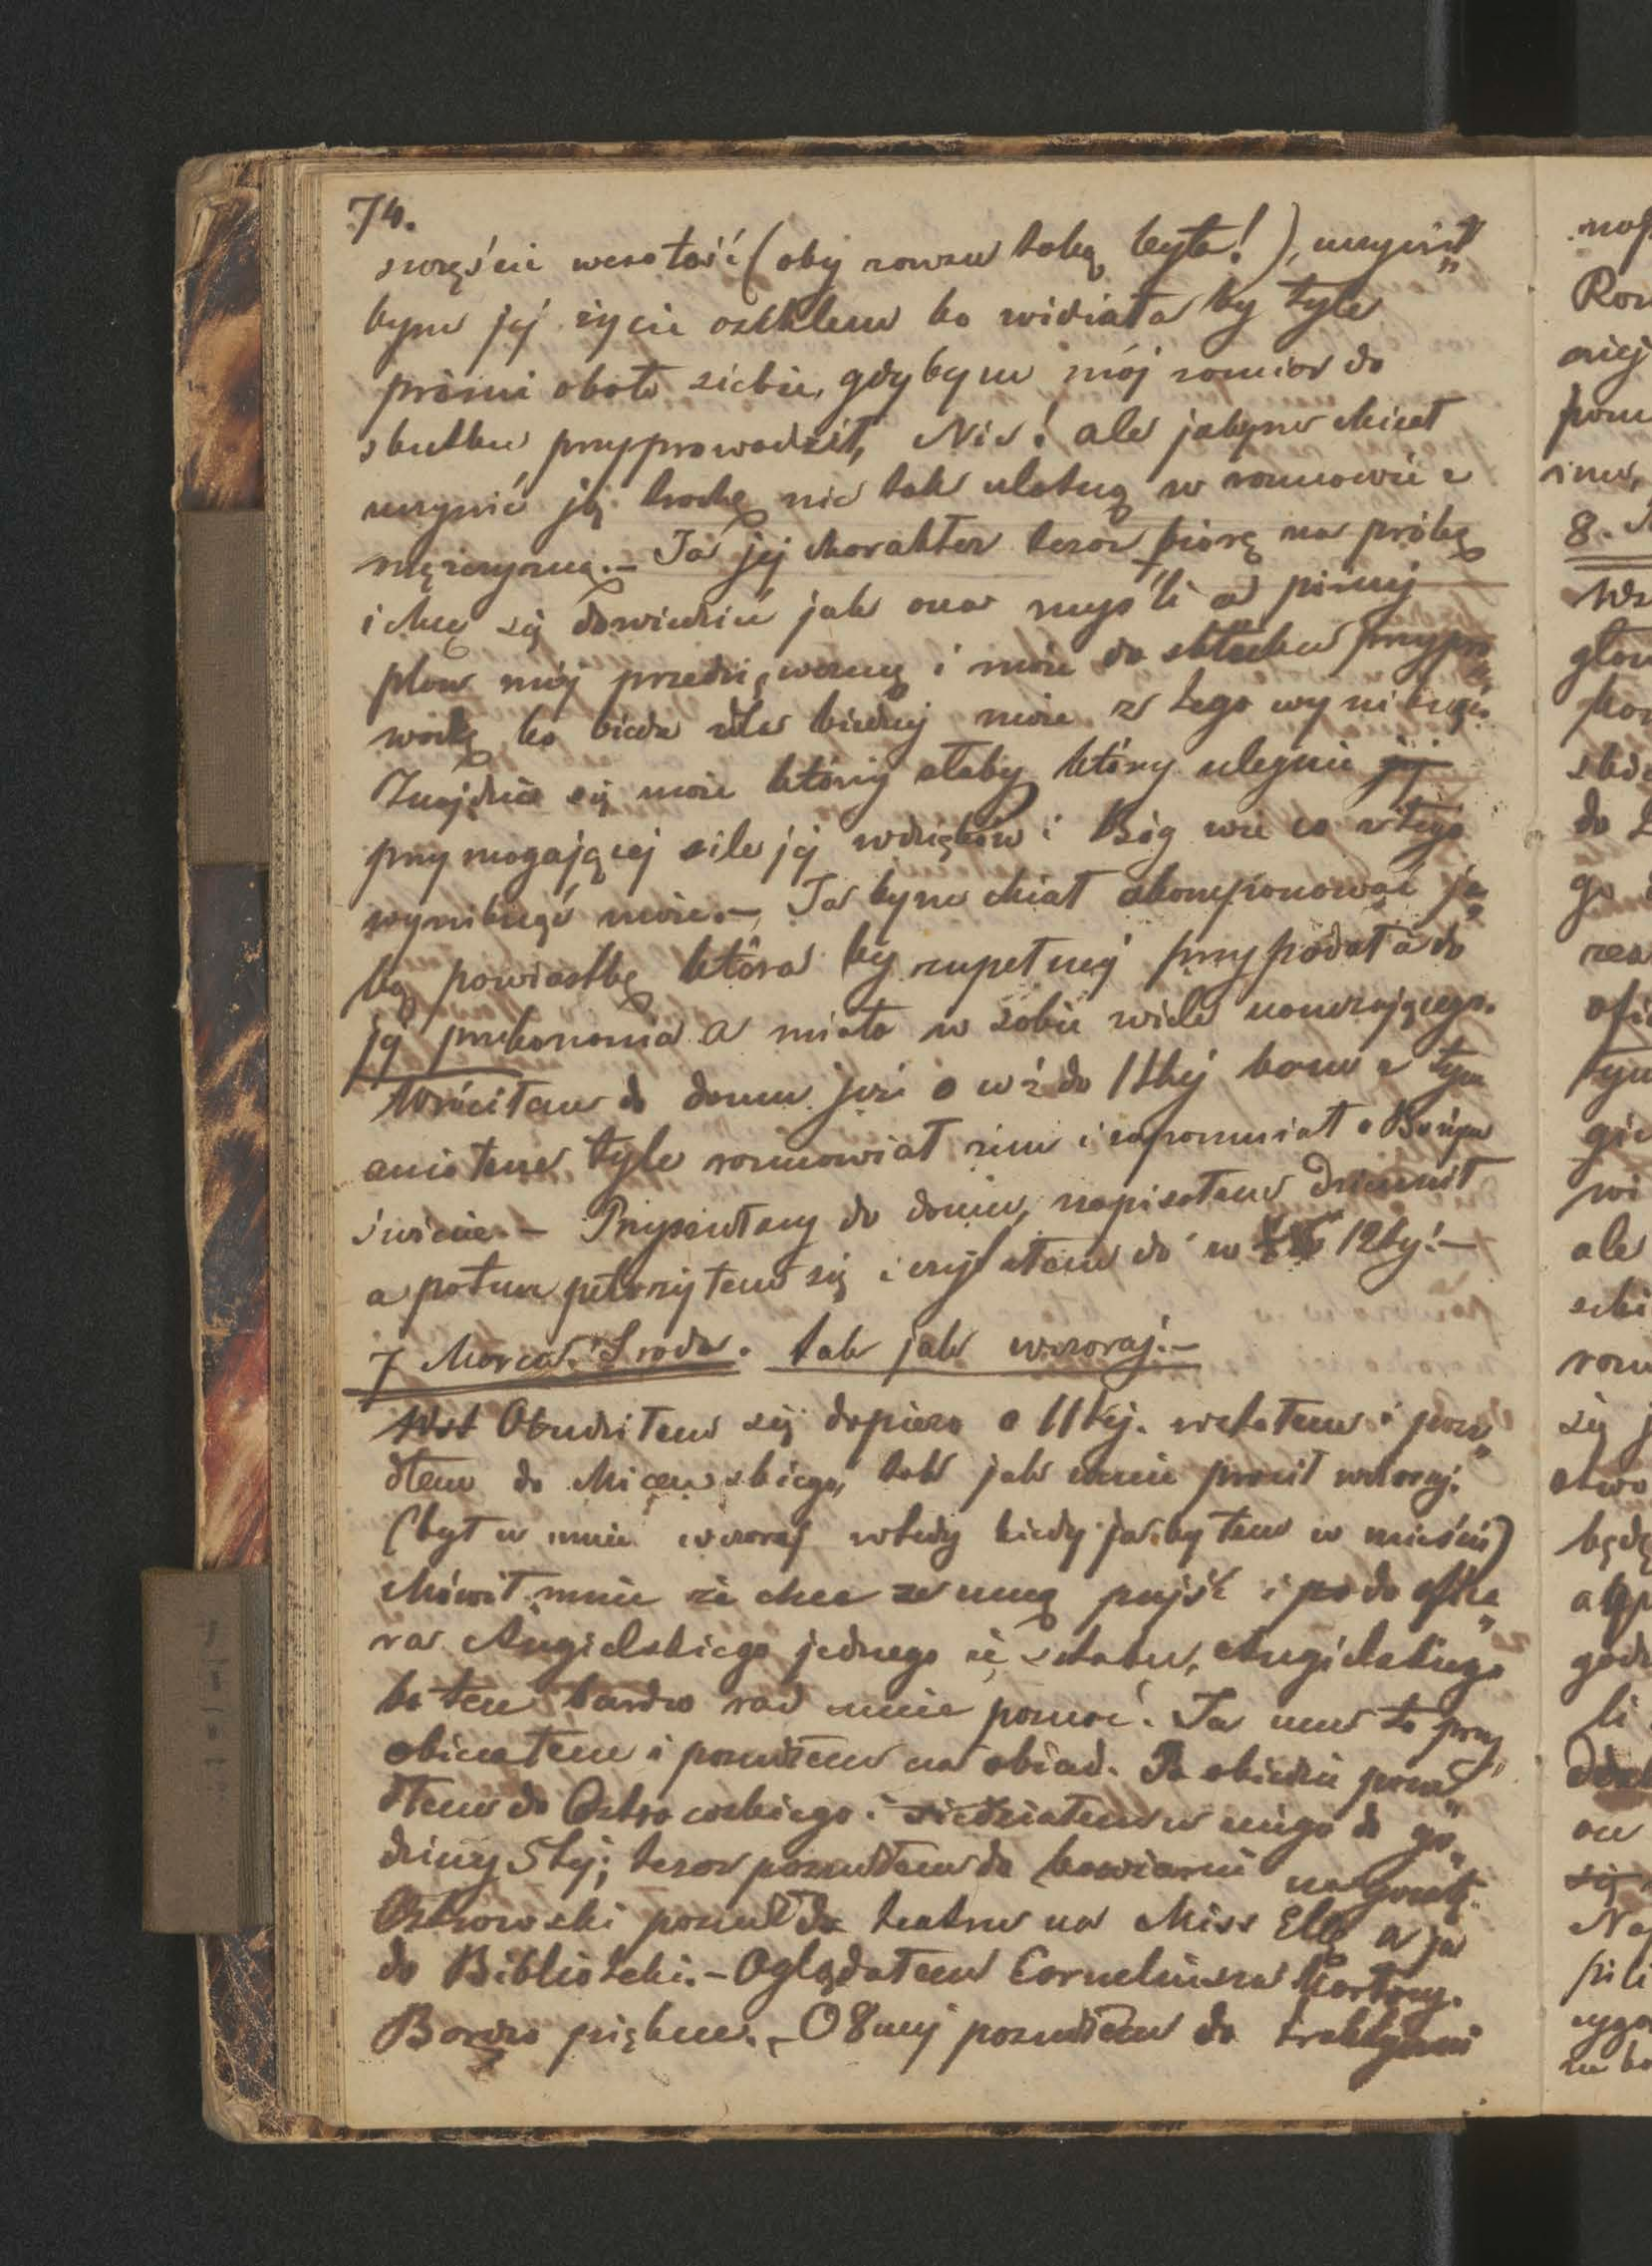 74.
szczęście wesołość (oby zawsze taką była!), uczynił„
bym jej życie piekłem bo widziała by tyle
próżni obok siebie, gdybym mój zamiar do
skutku przyprowadził, Nie! ale jakżebym chciał
uczynić ją trochę nie tak ulotną w rozmowie z
mężczyzną.— Ja jej charakter teraz biorę na próbę
i chcę się dowiedzieć jak ona myśli a później
plan mój przedsięwezmę i może do skutku przypro„
wadzę bo bieda dla biednej może z tego wyniknąć.
Znajdzie się może który słaby który ulegnie jej
przymagającej sile jej wdzięków i Bóg wie co z tego
wyniknąć może.— Ja bym chciał skomponować ja„
ką powiastkę która by zupełniej przypadała do
jej przekonania a miała w sobie wiele nauczającego.
Wróciłem do domu już o w ½ do 11tej bom z tym
aniołem tyle rozmawiał nim i zapomniał o Bożym
świecie.— Przyszedłszy do domu, napisałem dziennik
a potem położyłem się i czytałem do w 12tej!—
7 Marca. Środa. tak jak wczoraj.—
Wst Obudziłem się dopiero o 11tej. wstałem i posze„
dłem do Micewskiego, tak jak mnie prosił wczoraj.
(był u mnie wczoraj wtedy kiedy ja byłem w mieście)
Mówił mnie że chce ze mną pujść i po do ofice„
ra Angielskiego jednego ze sztabu, Angielskiego
bo ten bardzo rad mnie poznać. Ja mu to przy„
obiecałem i poszedłem na obiad. Po obiedzie posze„
dłem do Ostrowskiego i siedziałem u niego do go„
dziny 5tej; teraz poszedłem do kawiarni na gazetę.
Ostrowski poszedł do teatru na Miss Ellę a ja
do Biblioteki.— Oglądałem Corneliusza Kartony.
Bardzo piękne.— O 8mej poszedłem do traktyerni